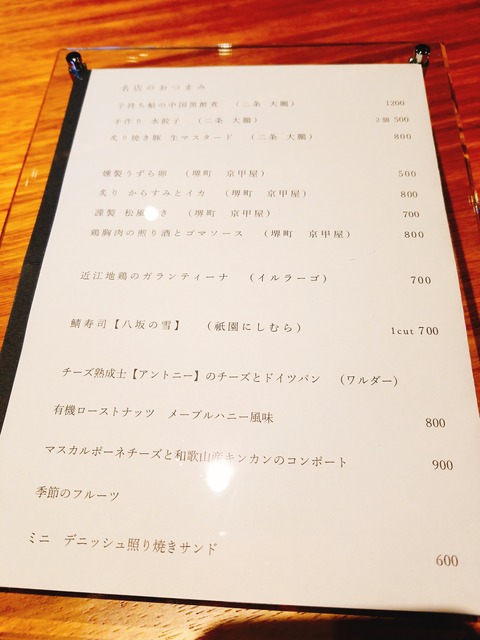 名店のおつまみ
子持ち鮎の中国黒酢煮 （二条 大鵬） 1200
手作り 水餃子 （二条 大鵬） 2個 500
炙り焼き豚 生マスタード （二条 大鵬） 800
燻製うずら卵 （堺町 京甲屋） 500
炙り からすみとイカ （堺町 京甲屋） 800
謹製 松風 き （堺町 京甲屋） 700
鶏胸肉の煎り酒とゴマソース （堺町 京甲屋） 800
近江地鶏のガランティーナ （イルラーゴ） 700
鯖寿司【八坂の雪】 （祇園にしむら） 1cut 700
チーズ熟成士【アントニー】のチーズとドイツパン （ワルダー）
有機ローストナッツ メープルハニー風味 800
マスカルポーネチーズと和歌山産キンカンのコンポート 900
季節のフルーツ
ミニ デニッシュ照り焼きサンド 600